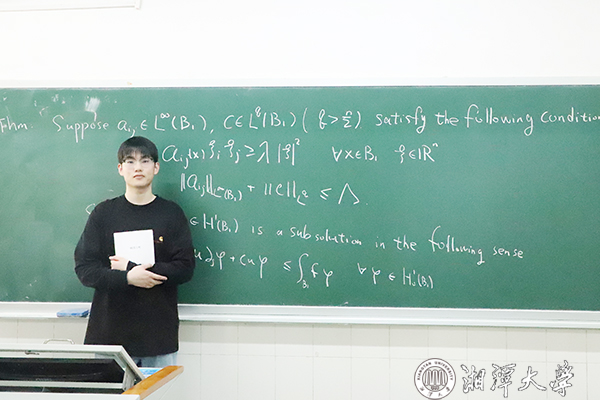 Thm. Suppose aᵢⱼ ∈ L^∞(B₁), C ∈ L^q(B₁) ( q > n/2 ) satisfy the following condition
aᵢⱼ(x) ξᵢ ξⱼ ≥ λ |ξ|² ∀x∈B₁ ξ∈ℝⁿ
‖aᵢⱼ‖_{L^∞(B₁)} + ‖C‖_{L^q} ≤ Λ.
∈ H¹(B₁) is a subsolution in the following sense
u ∂ⱼφ + cuφ ≤ ∫_{B₁} fφ ∀ φ ∈ H¹₀(B₁)
XIANGTAN UNIVERSITY
湘潭大学